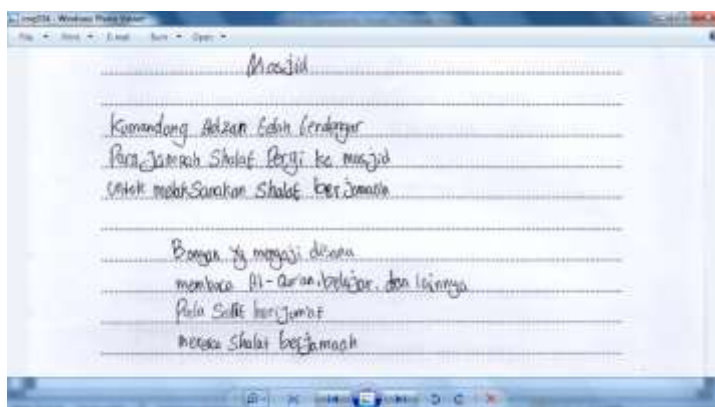 img334 - Windows Photo Viewer
File Print E-mail Burn Open
Masjid
Kumandang Adzan telah terdengar
Para Jamaah Shalat Pergi ke masjid
untuk melaksanakan shalat berjamaah
Banyak yg mengaji disana
membaca Al-Quran, belajar, dan lainnya
Pada Saat hari Jumat
mereka shalat berjamaah